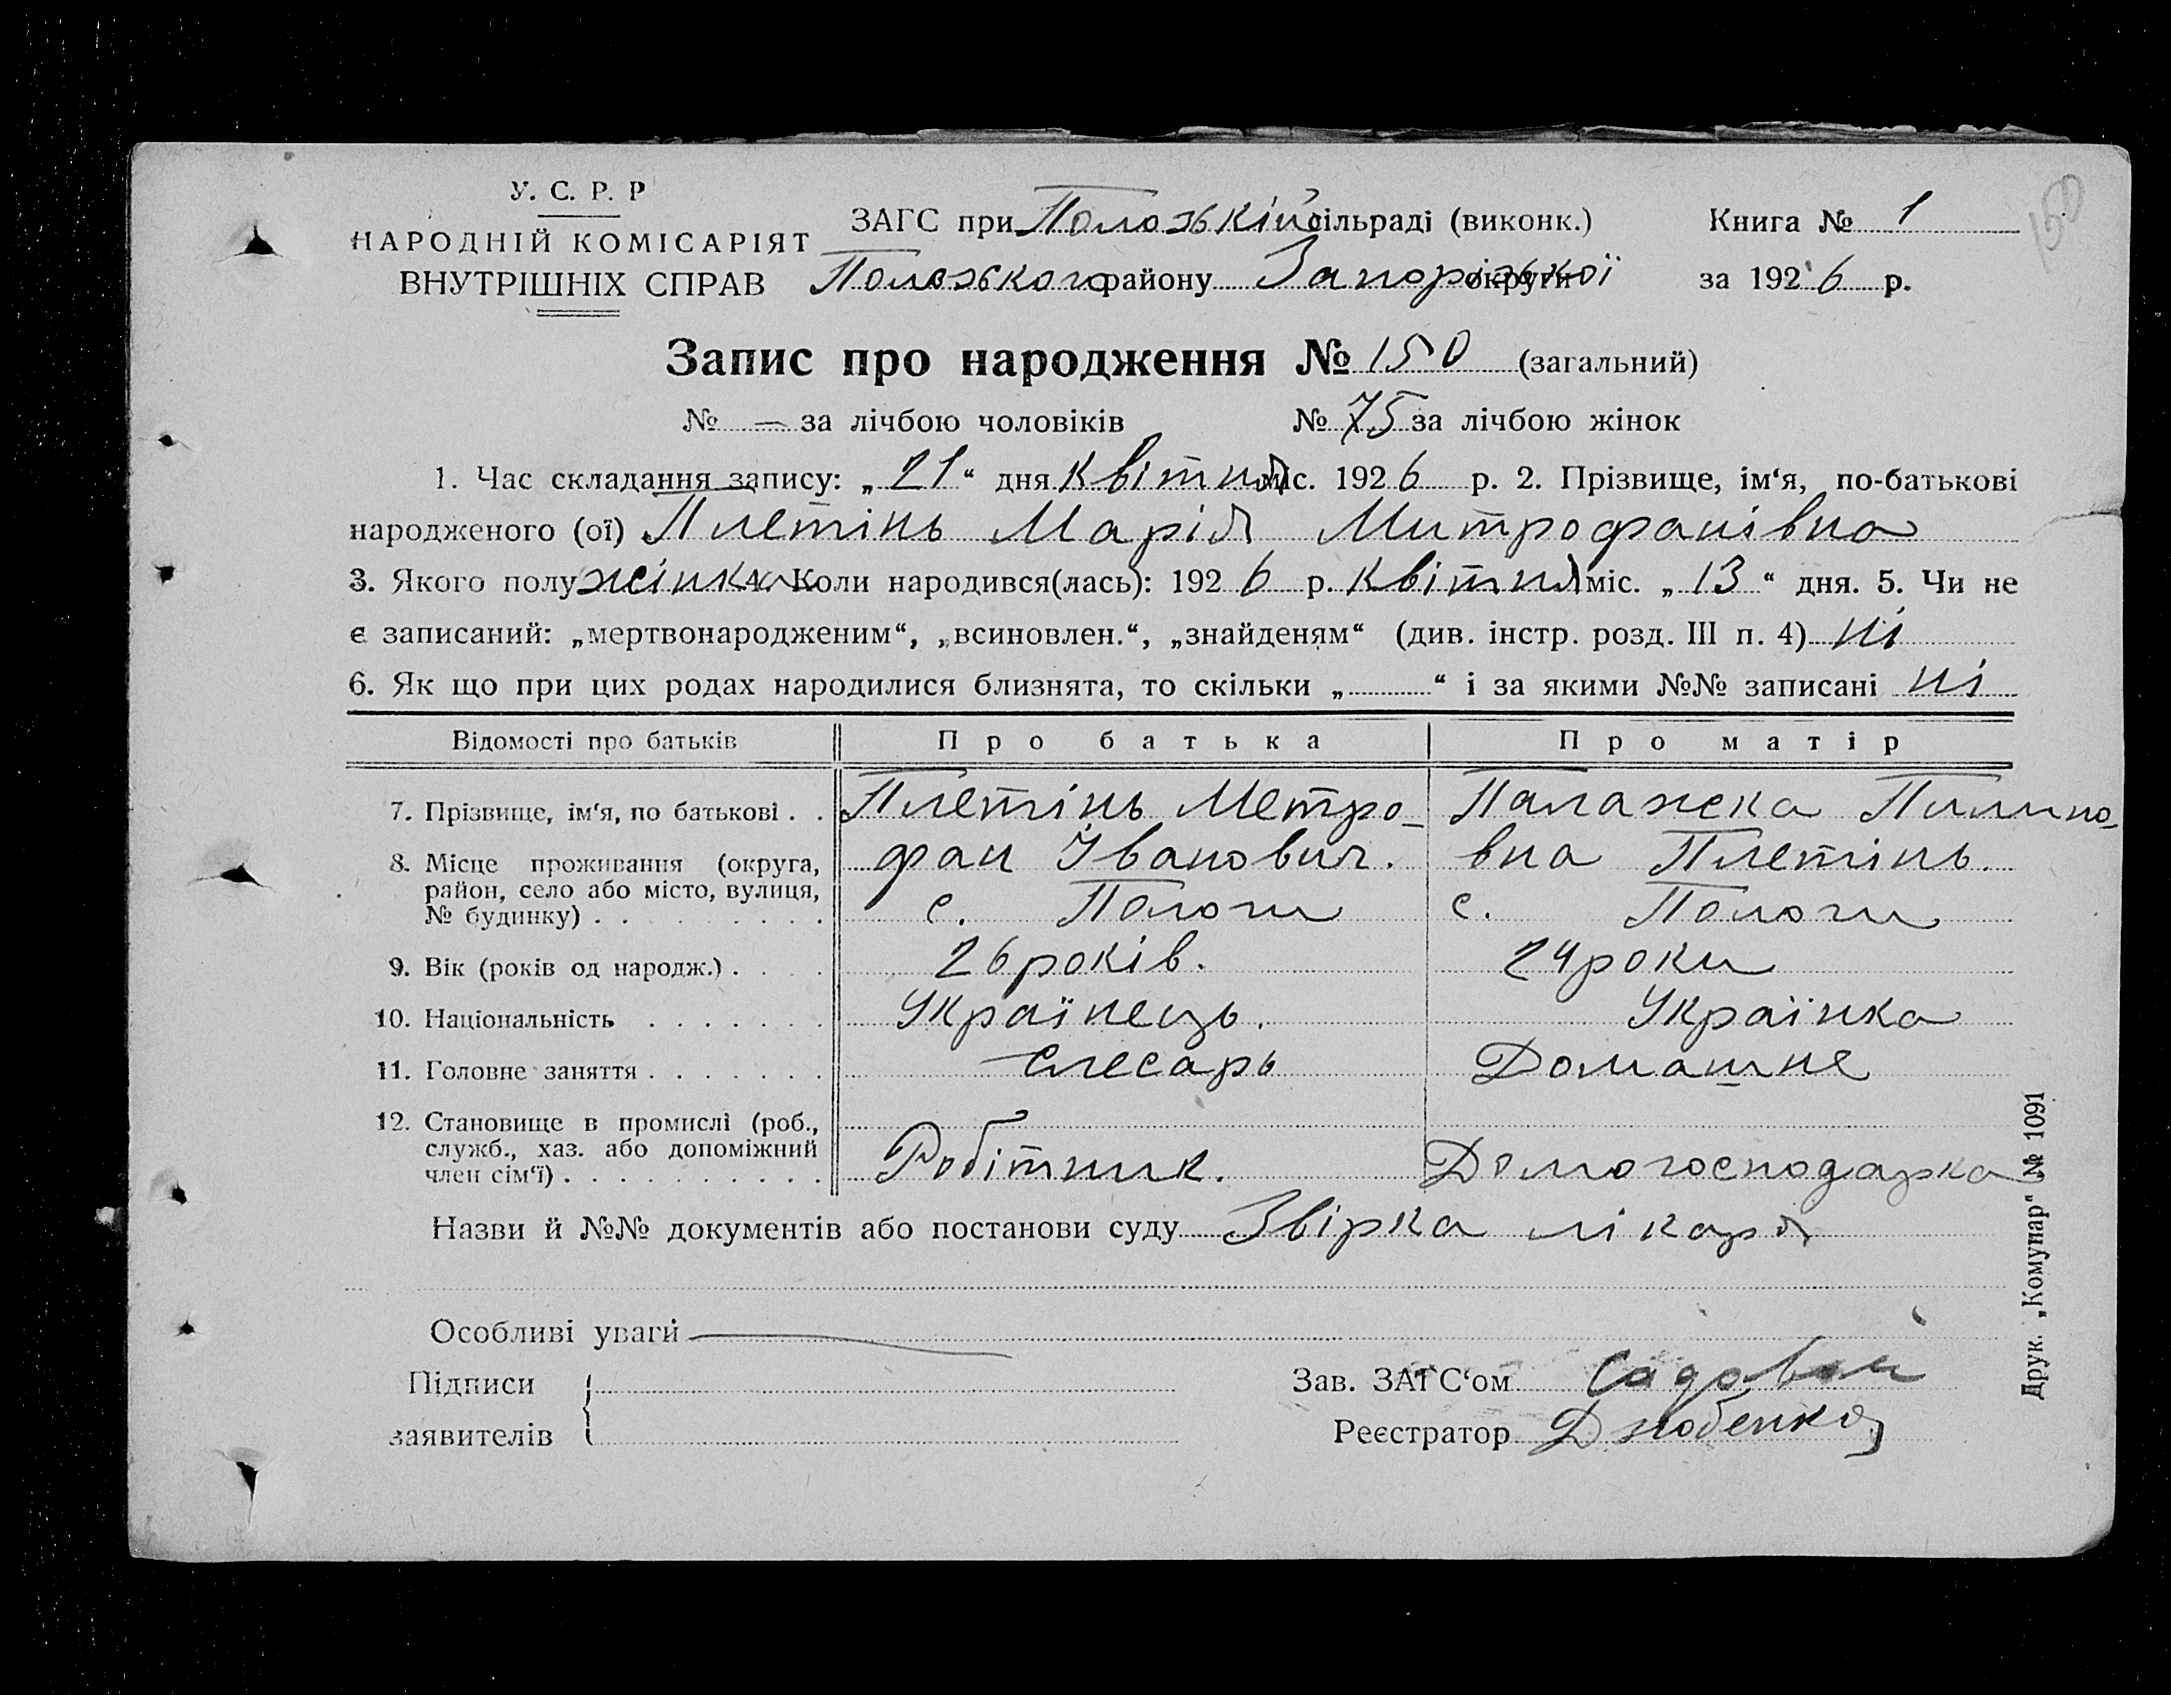 150
У. С. Р. Р
НАРОДНІЙ КОМІСАРІЯТ
ВНУТРІШНІХ СПРАВ
ЗАГС при Положській сільраді (виконк.)
Положського району Запорізької округи
Книга № 1
за 1926 р.
Запис про народження № 150 (загальний)
№ — за лічбою чоловіків № 75 за лічбою жінок
1. Час складання запису: „21“ дня квітня міс. 1926 р. 2. Прізвище, ім‘я, по-батькові
народженого (ої) Плетінь Марія Митрофанівна
3. Якого полу жінка 4. Коли народився(лась): 1926 р. квітня міс. „13“ дня. 5. Чи не
є записаний: „мертвонародженим“, „всиновлен.“, „знайденям“ (див. інстр. розд. III п. 4) ні
6. Як що при цих родах народилися близнята, то скільки „ “ і за якими №№ записані ні
Відомості про батьків Про батька Про матір
7. Прізвище, ім‘я, по батькові . . Плетінь Метро- Палажска Пилипо-
фан Іванович. вна Плетінь.
8. Місце проживання (округа,
район, село або місто, вулиця,
№ будинку) . . . . . . . . . с. Пологи с. Пологи
9. Вік (років од народж.) . . . . 26 років. 24 роки
10. Національність . . . . . . . Українець. Українка
11. Головне заняття . . . . . . . слесарь Домашне
12. Становище в промислі (роб.,
служб., хаз. або допоміжний
член сім‘ї) . . . . . . . . . . Робітник. Домогосподарка
Назви й №№ документів або постанови суду Звірка лікаря
Особливі уваги —
Підписи
заявителів
Зав. ЗАГС‘ом Садовий
Реєстратор
Друк. „Комунар“ № 1091